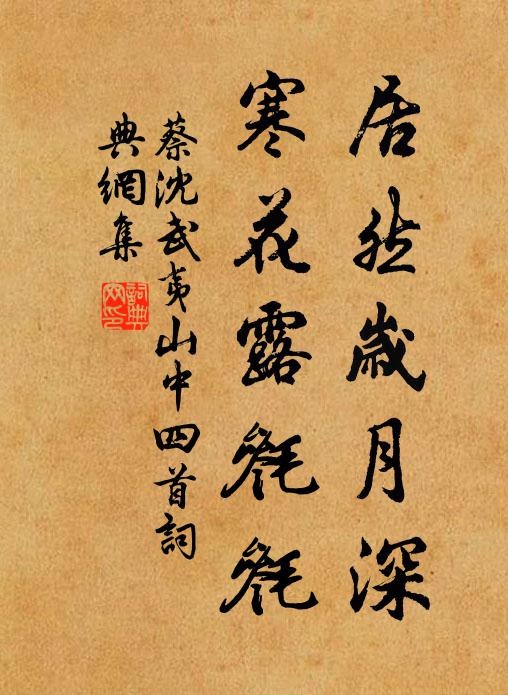 居然歲月深
寒花露毿毿
蔡沈武夷山中四首詞
典網集
詞典網印